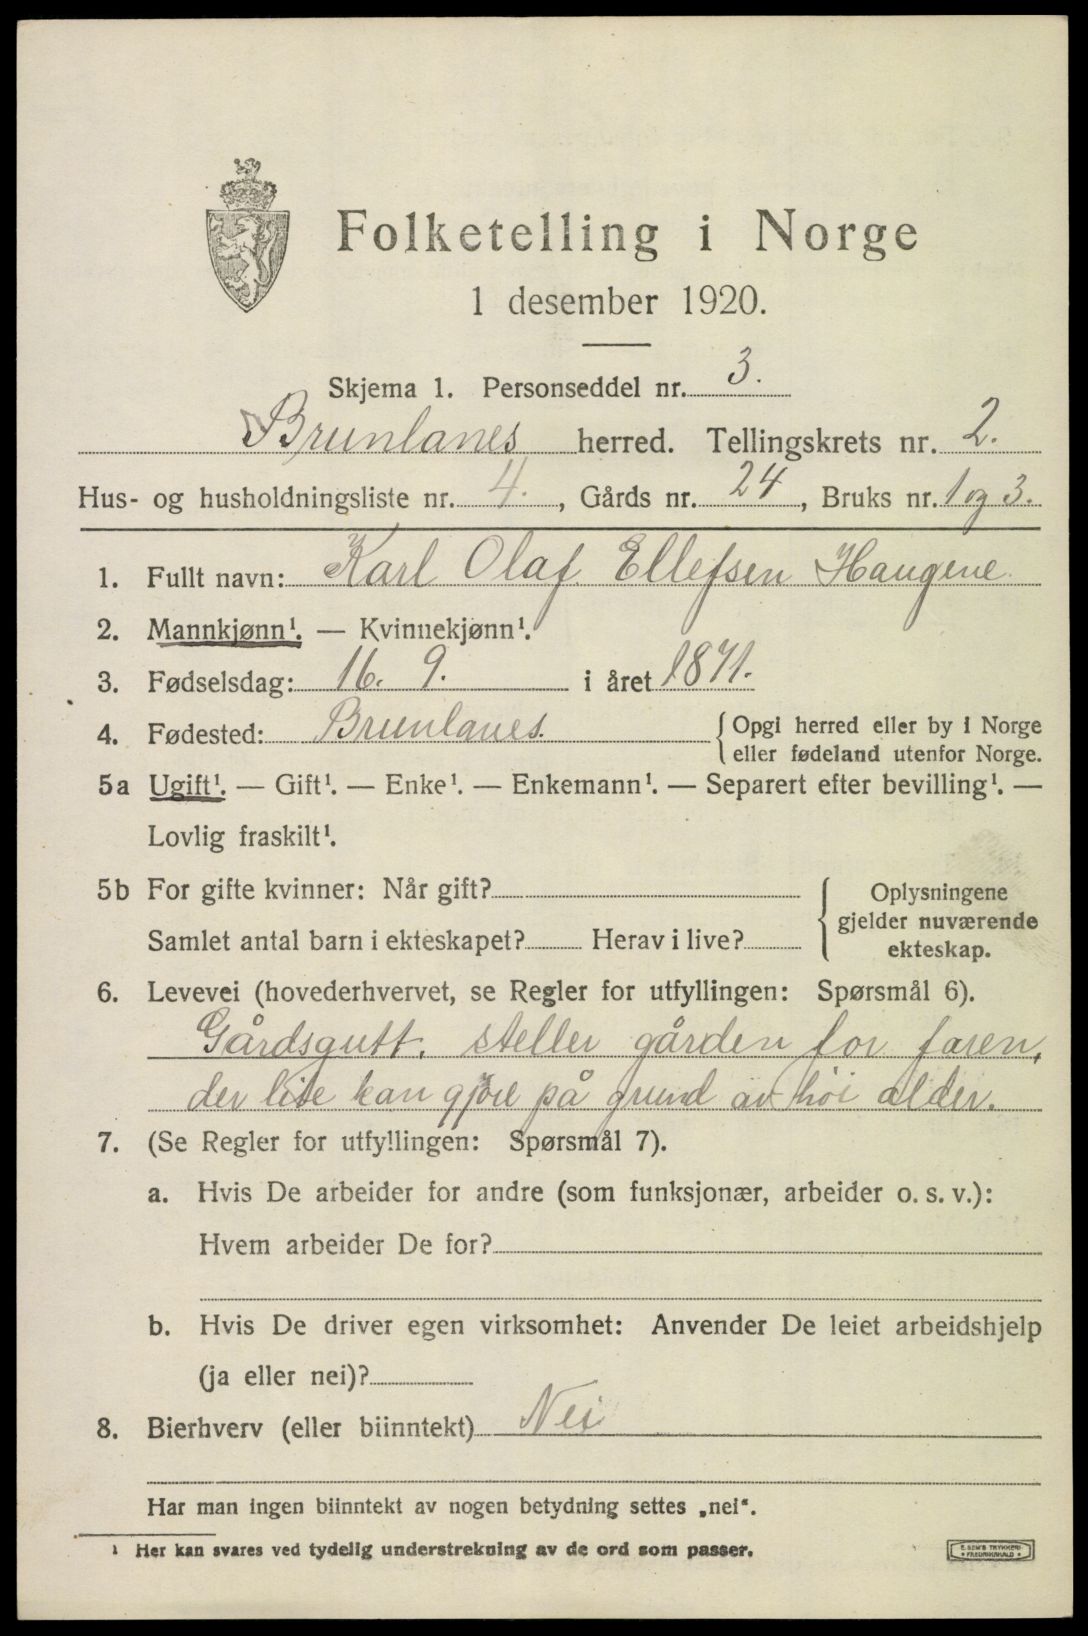 Folketelling i Norge
1 desember 1920.
Skjema 1. Personseddel nr. 3.
Brunlanes herred. Tellingskrets nr. 2.
Hus- og husholdningsliste nr. 4., Gårds nr. 24, Bruks nr. 1 og 3.
1. Fullt navn: Karl Olaf Ellefsen Haugene
2. Mannkjønn¹. — Kvinnekjønn¹.
3. Fødselsdag: 16. 9. i året 1871.
4. Fødested: Brunlanes. { Opgi herred eller by i Norge
eller fødeland utenfor Norge.
5a Ugift¹. — Gift¹. — Enke¹. — Enkemann¹. — Separert efter bevilling¹. —
Lovlig fraskilt¹.
5b For gifte kvinner: Når gift?
Samlet antal barn i ekteskapet? Herav i live?
Oplysningene
gjelder nuværende
ekteskap.
6. Levevei (hovederhvervet, se Regler for utfyllingen: Spørsmål 6).
Gårdsgutt. steller gården for faren,
der lite kan gjøre på grund av høi alder.
7. (Se Regler for utfyllingen: Spørsmål 7).
a. Hvis De arbeider for andre (som funksjonær, arbeider o. s. v.):
Hvem arbeider De for?
b. Hvis De driver egen virksomhet: Anvender De leiet arbeidshjelp
(ja eller nei)?
8. Bierhverv (eller biinntekt) Nei
Har man ingen biinntekt av nogen betydning settes „nei“.
¹ Her kan svares ved tydelig understrekning av de ord som passer.
E. SEM'S TRYKKERI
• FREDRIKSHALD •